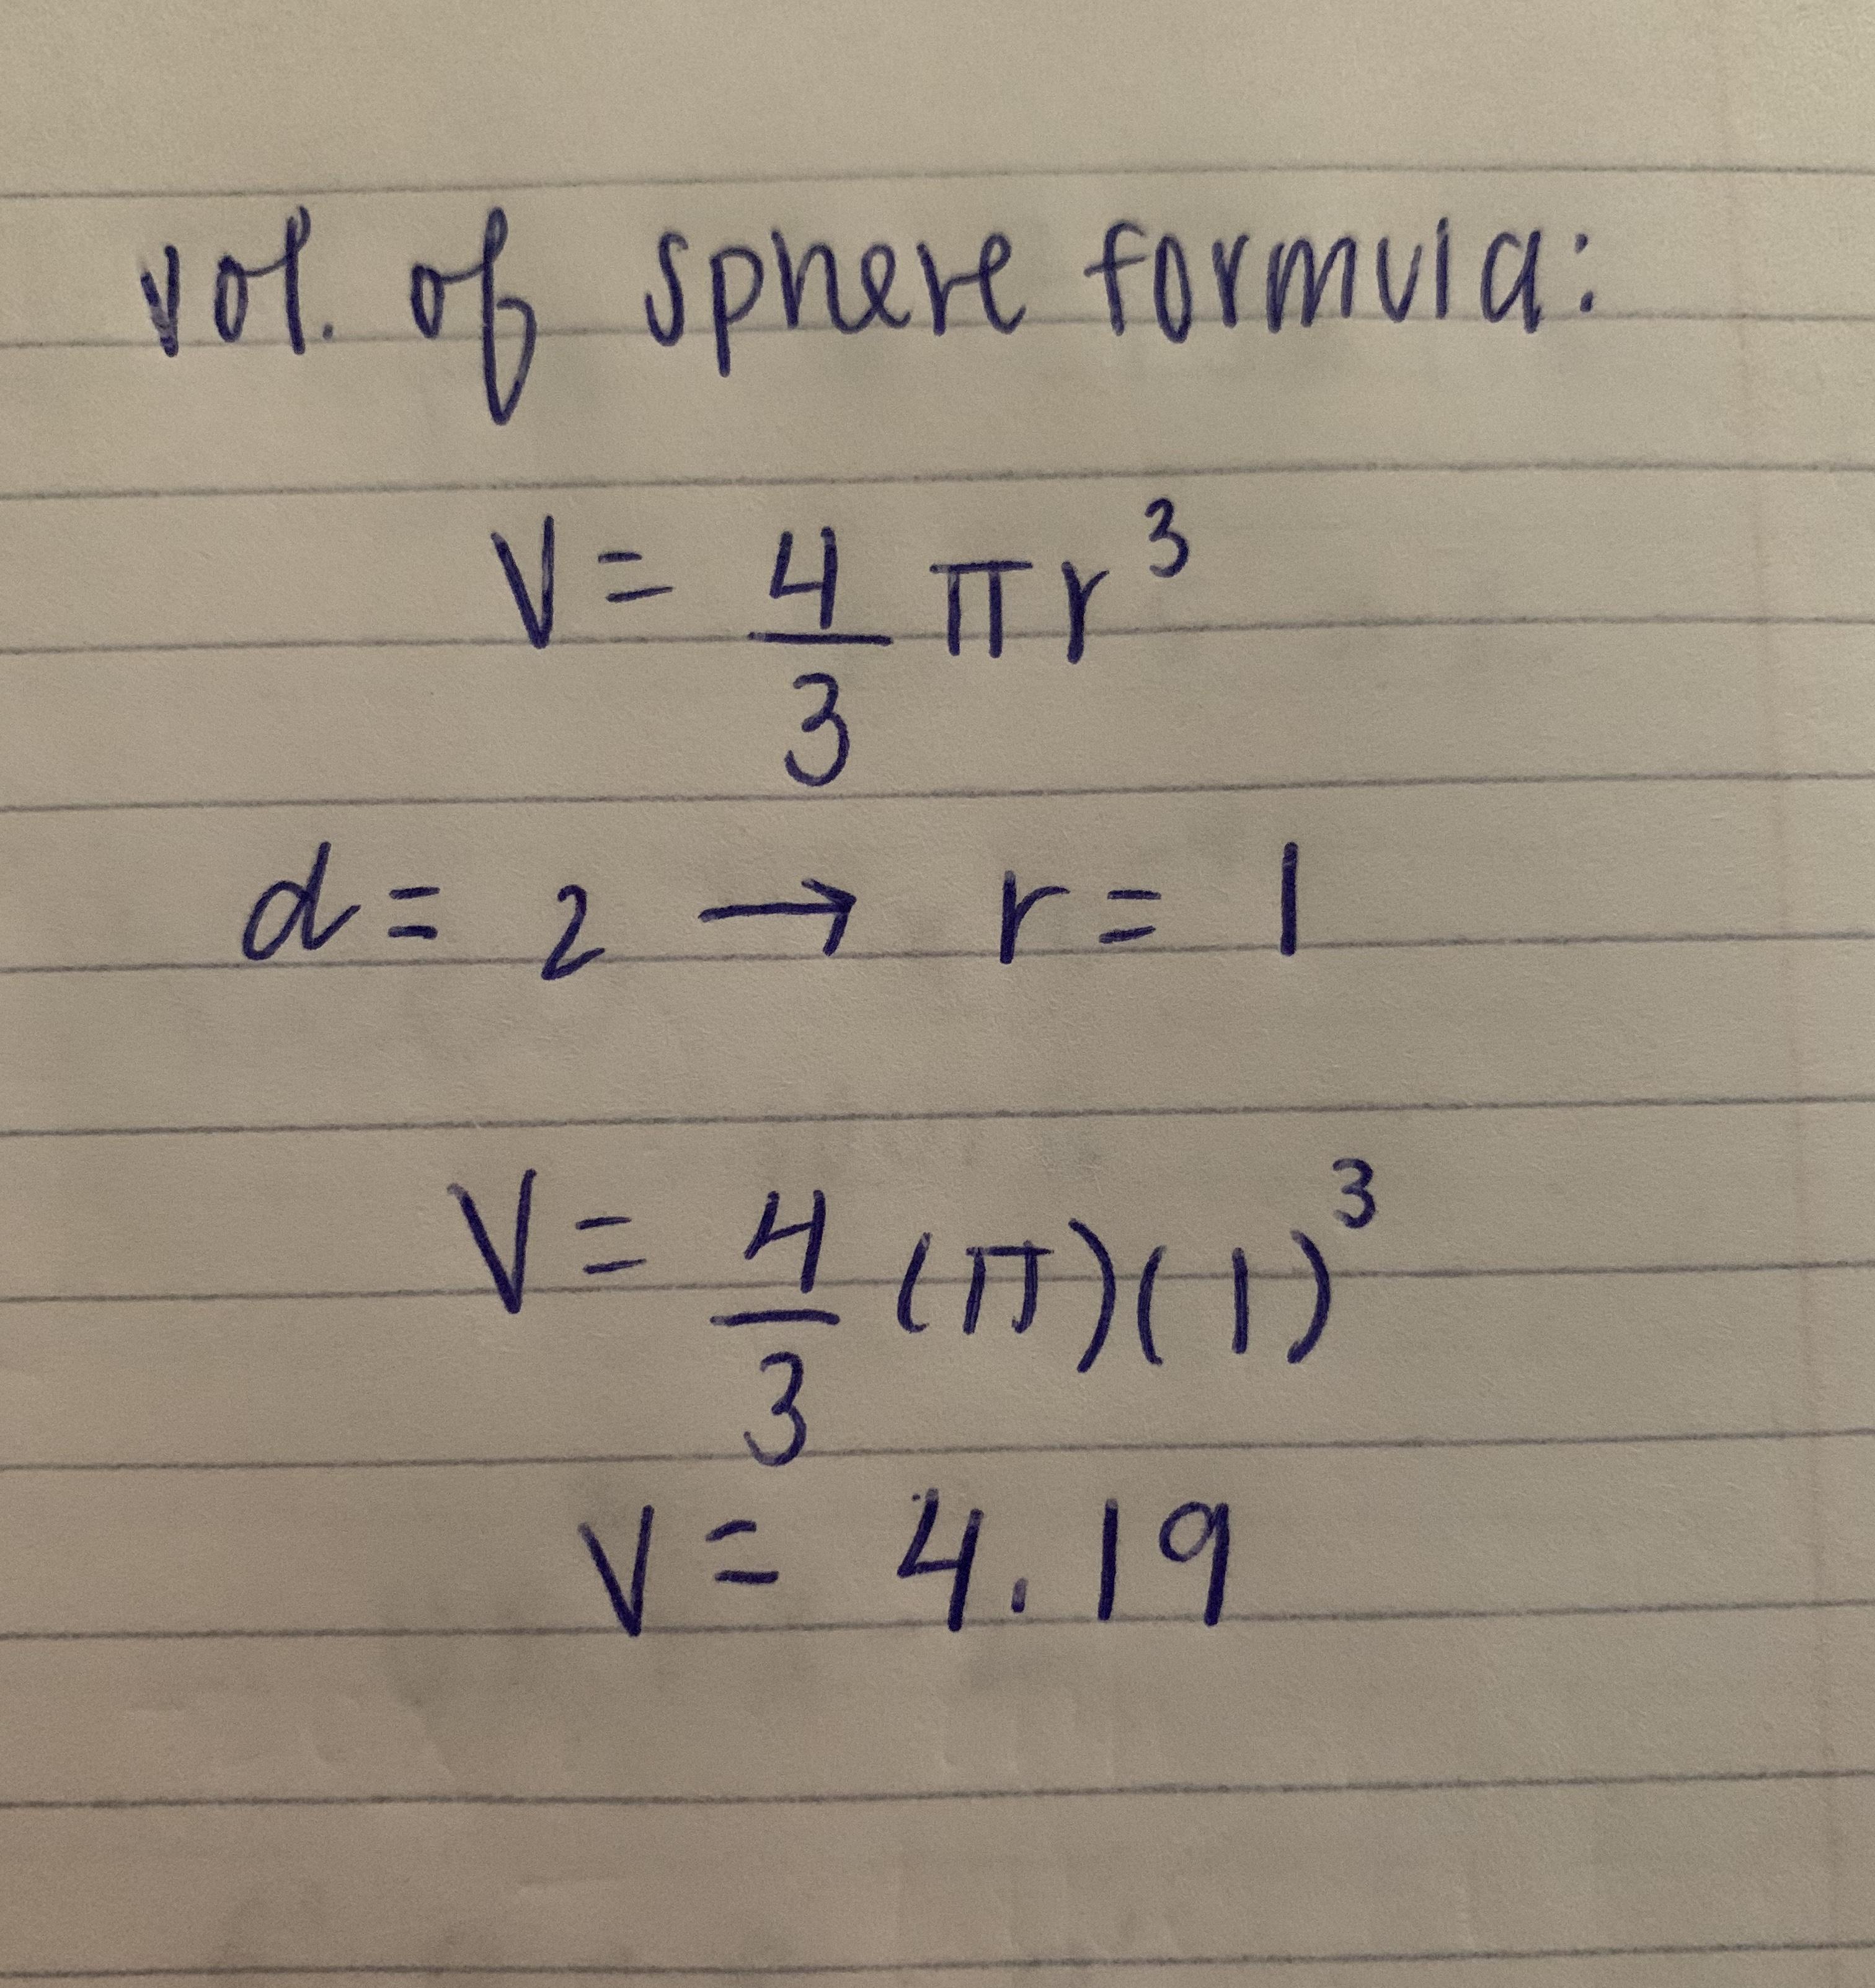 vol. of sphere formula:
V = 4/3 πr³
d = 2 → r = 1
V = 4/3 (π)(1)³
V = 4.19